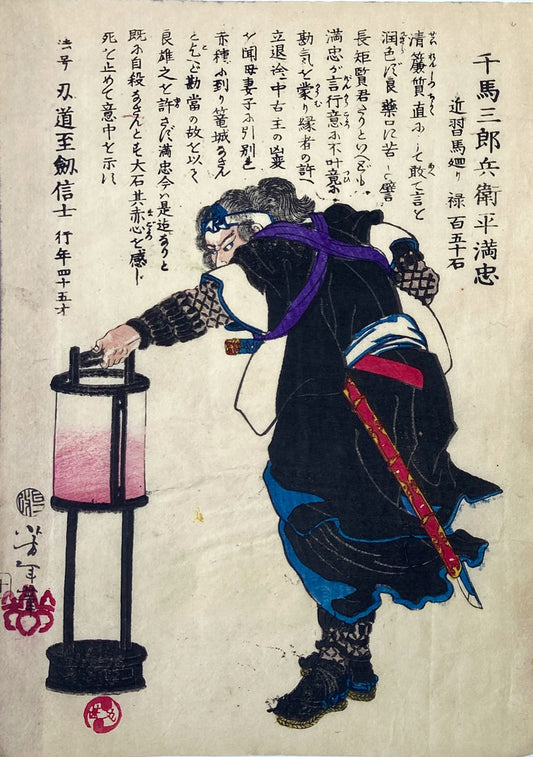 千馬三郎兵衛平満忠
近習馬廻り 禄 百五十石
清簾質直にして敢て言を
潤色せず良藥口に苦しと譬
長矩賢君なりといへども
満忠が言行意に不叶竟に
勘氣を蒙り縁者の許へ
立退途中古主の凶変
を聞母妻子に引別れ
赤穂に到り篭城なさん
と乞ふ勘當の故を以て
良雄之を許さず満忠今は是迄なりと
既に自殺なさんとも大石其赤心を感じ
死を止めて意中を示に
法号 刃道至劔信士 行年四十五才
芳年筆